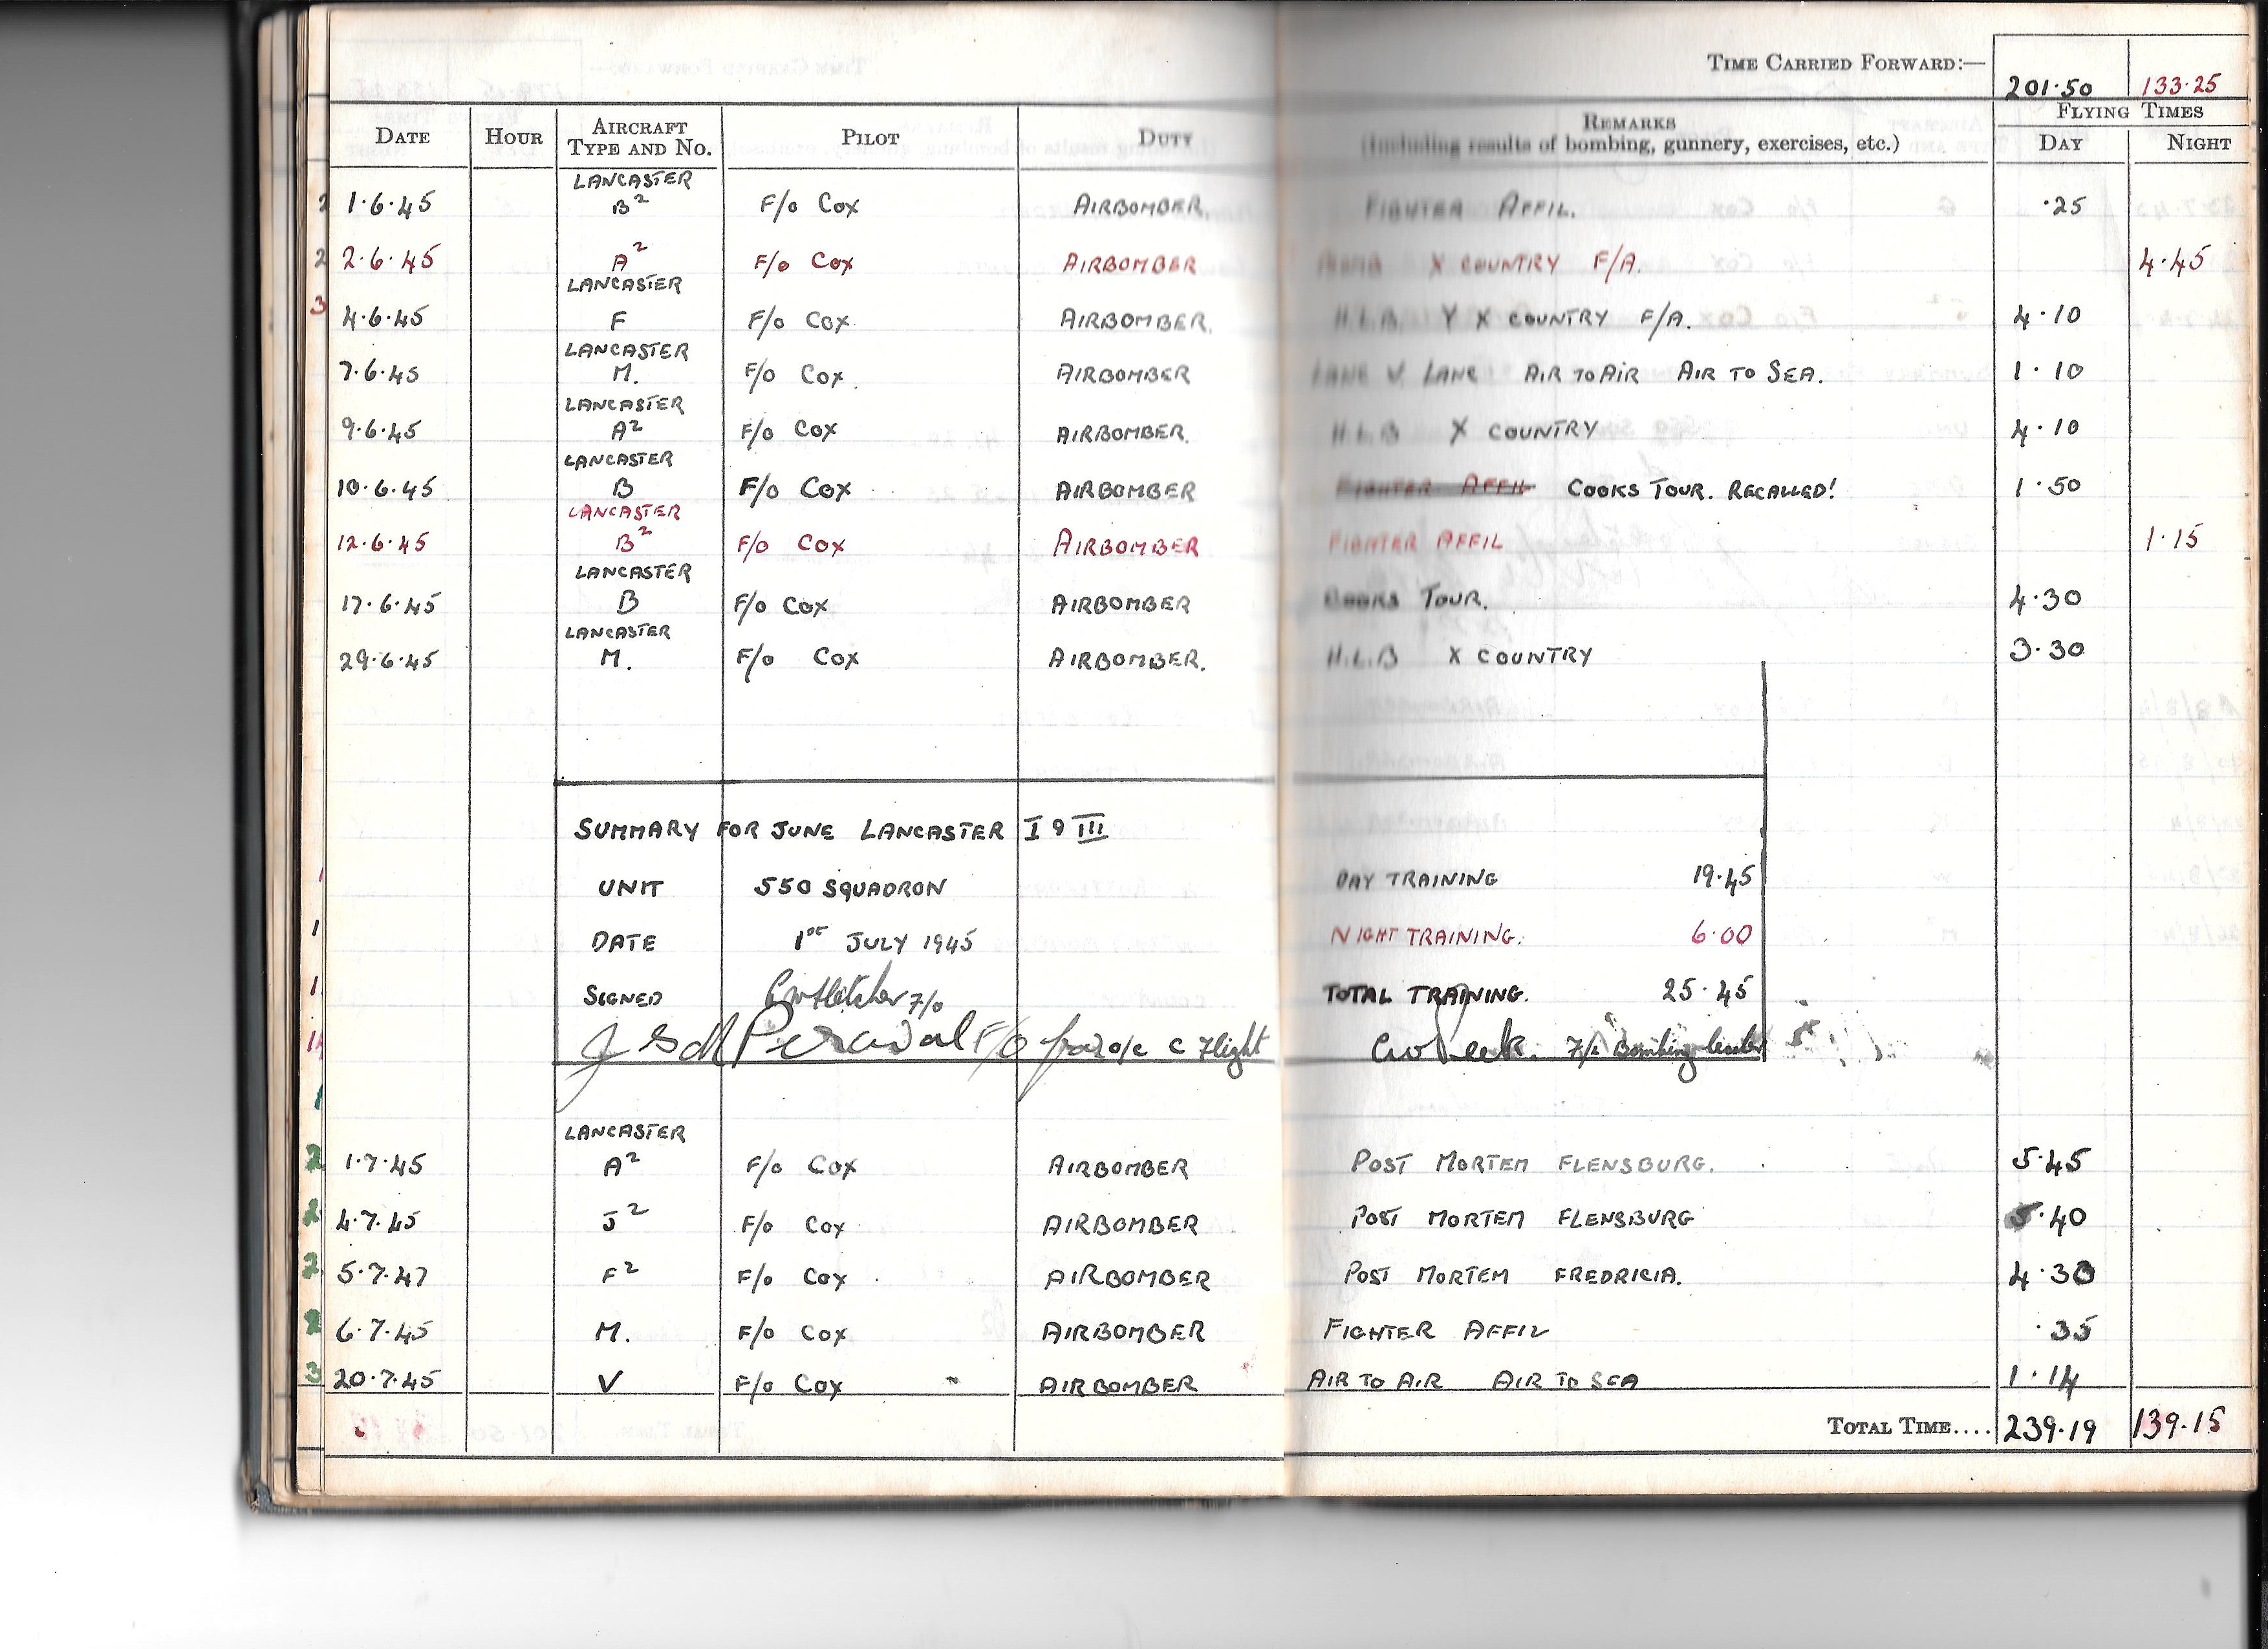 TIME CARRIED FORWARD:— 201·50 133·25
DATE HOUR AIRCRAFT TYPE AND No. PILOT DUTY REMARKS (Including results of bombing, gunnery, exercises, etc.) FLYING TIMES DAY NIGHT
LANCASTER
1·6·45 B2 F/o COX AIRBOMBER. FIGHTER AFFIL. ·25
2·6·45 A2 F/o COX AIRBOMBER X COUNTRY F/A. 4·45
LANCASTER
4·6·45 F F/o COX AIRBOMBER. H.L.B. Y X COUNTRY F/A. 4·10
LANCASTER
7·6·45 M. F/o COX. AIRBOMBER LANC V LANC AIR TO AIR AIR TO SEA. 1·10
LANCASTER
9·6·45 A2 F/o COX AIRBOMBER. H.L.B X COUNTRY 4·10
LANCASTER
10·6·45 B F/o COX AIRBOMBER FIGHTER AFFIL COOKS TOUR. RECALLED! 1·50
LANCASTER
12·6·45 B2 F/o COX AIRBOMBER FIGHTER AFFIL 1·15
LANCASTER
17·6·45 B F/o COX AIRBOMBER COOKS TOUR. 4·30
LANCASTER
29·6·45 M. F/o COX AIRBOMBER. H.L.B X COUNTRY 3·30
SUMMARY FOR JUNE LANCASTER I & III
UNIT 550 SQUADRON DAY TRAINING 19·45
DATE 1ST JULY 1945 NIGHT TRAINING. 6·00
SIGNED F/o TOTAL TRAINING. 25·45
Percival F/o for o/c C Flight F/L Bombing Leader
LANCASTER
1·7·45 A2 F/o COX AIRBOMBER POST MORTEM FLENSBURG. 5·45
4·7·45 J2 F/o COX AIRBOMBER POST MORTEM FLENSBURG 5·40
5·7·47 F2 F/o COX AIRBOMBER POST MORTEM FREDRICIA. 4·30
6·7·45 M. F/o COX AIRBOMBER FIGHTER AFFIL ·35
20·7·45 V F/o COX AIRBOMBER AIR TO AIR AIR TO SEA 1·14
TOTAL TIME.... 239·19 139·15